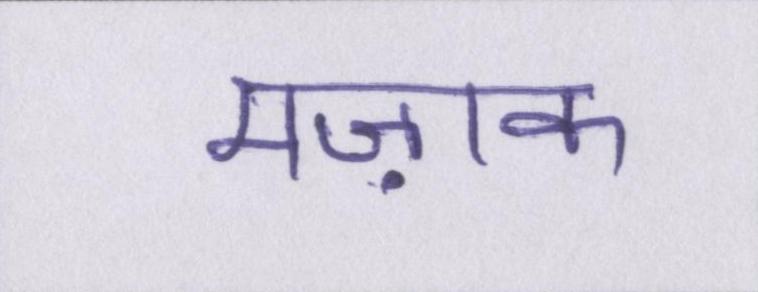 मज़ाक